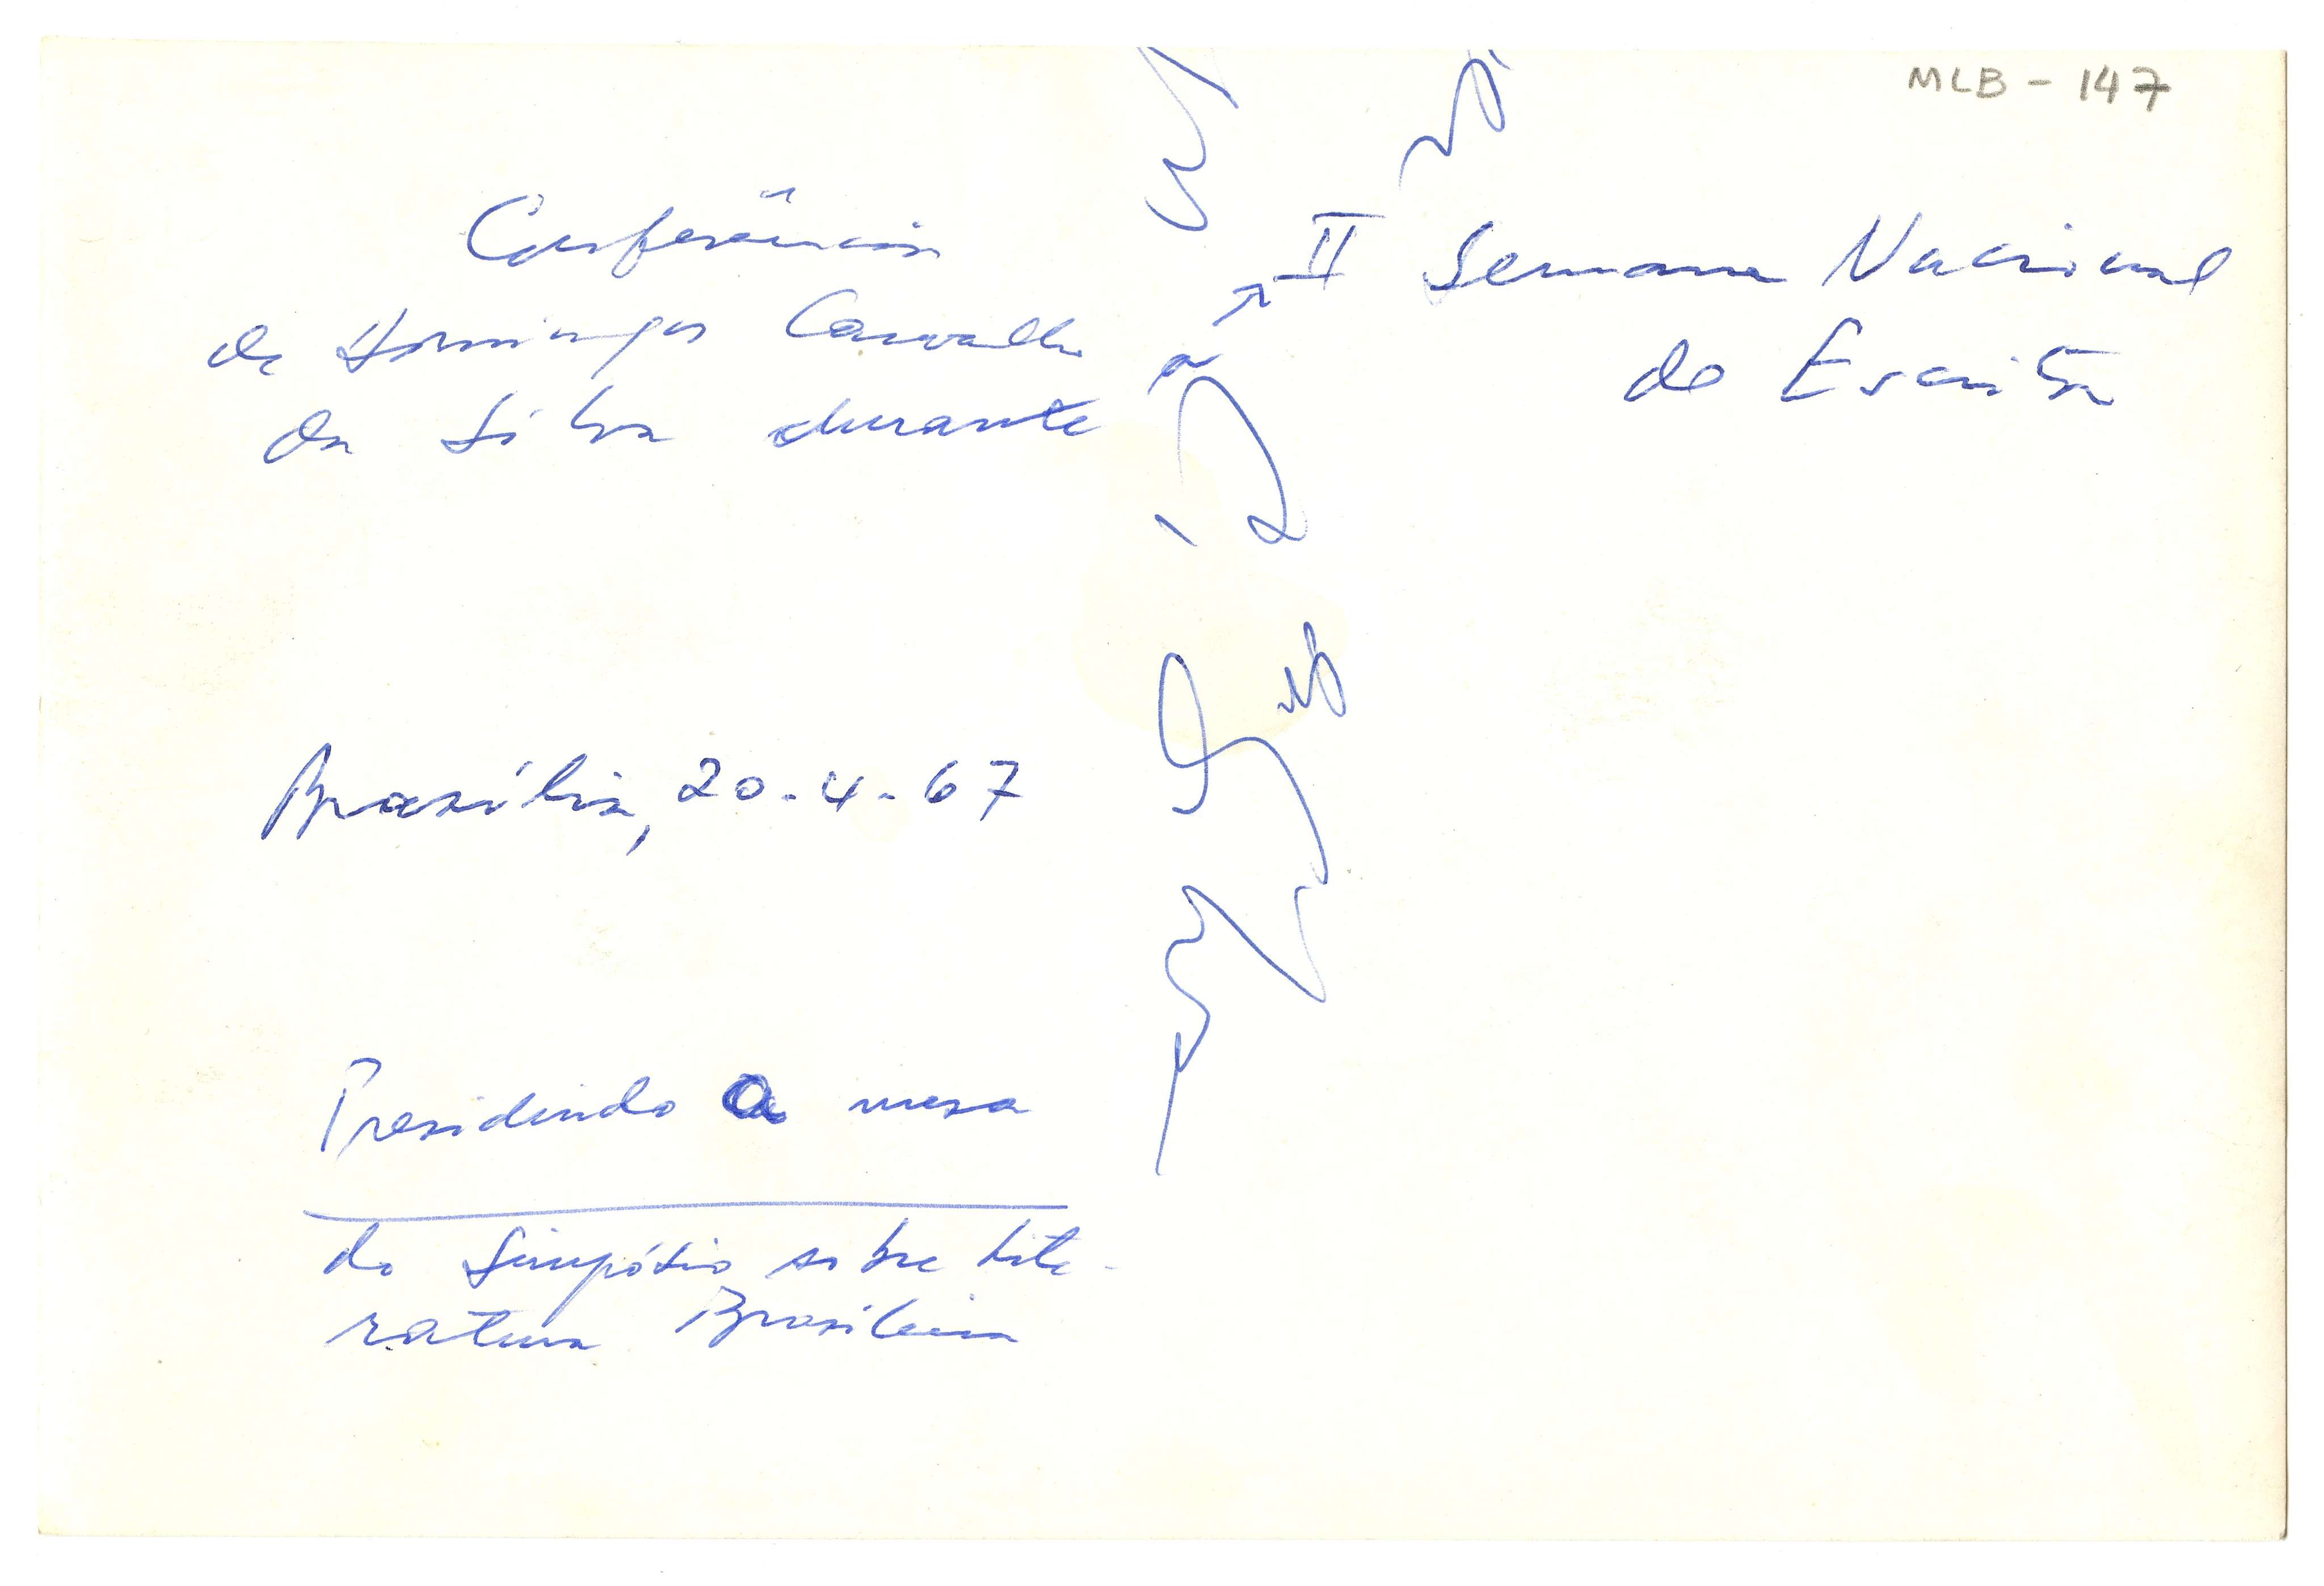 MLB - 147
Conferência
de Domingos Carvalho
da Silva durante
a II Semana Nacional
do Escritor
Brasília, 20-4-67
Presidindo a mesa
do Simpósio sobre Lite-
ratura Brasileira